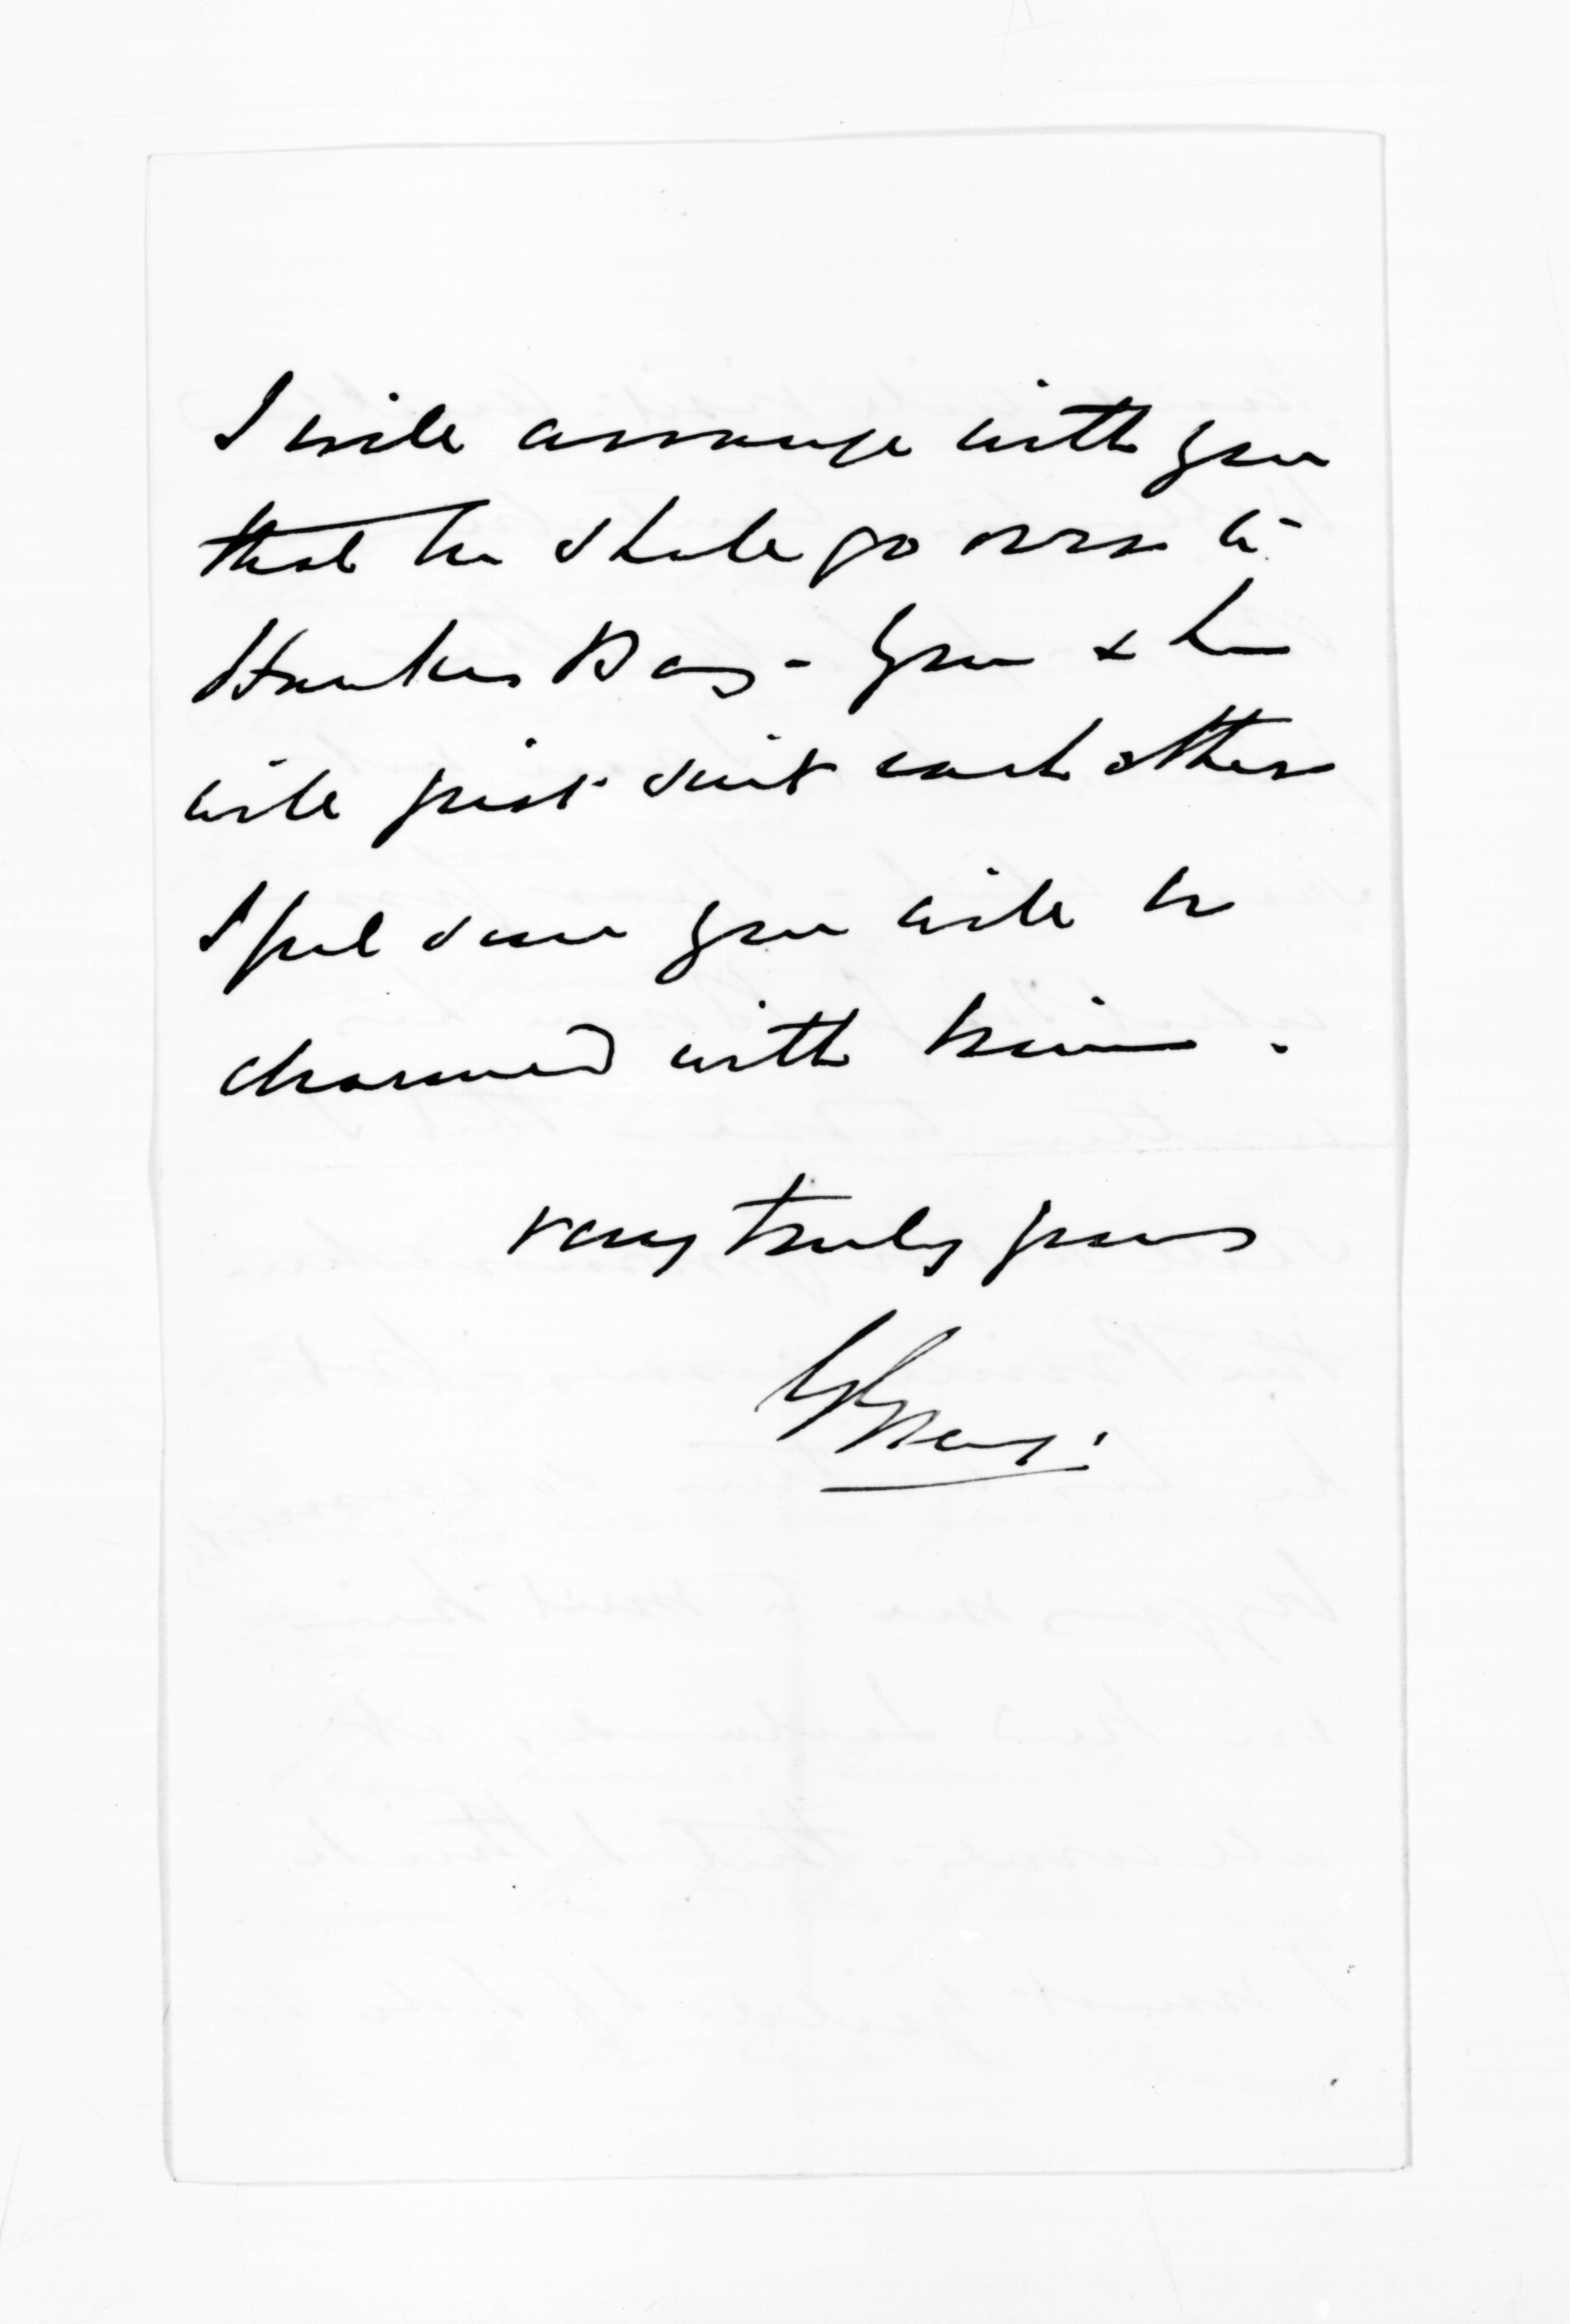 I will arrange with you
that he shall go over to
Hawkes Bay - you & he
will just suit each other
I feel sure you will be
charmed with him.
very truly yours
G Grey.